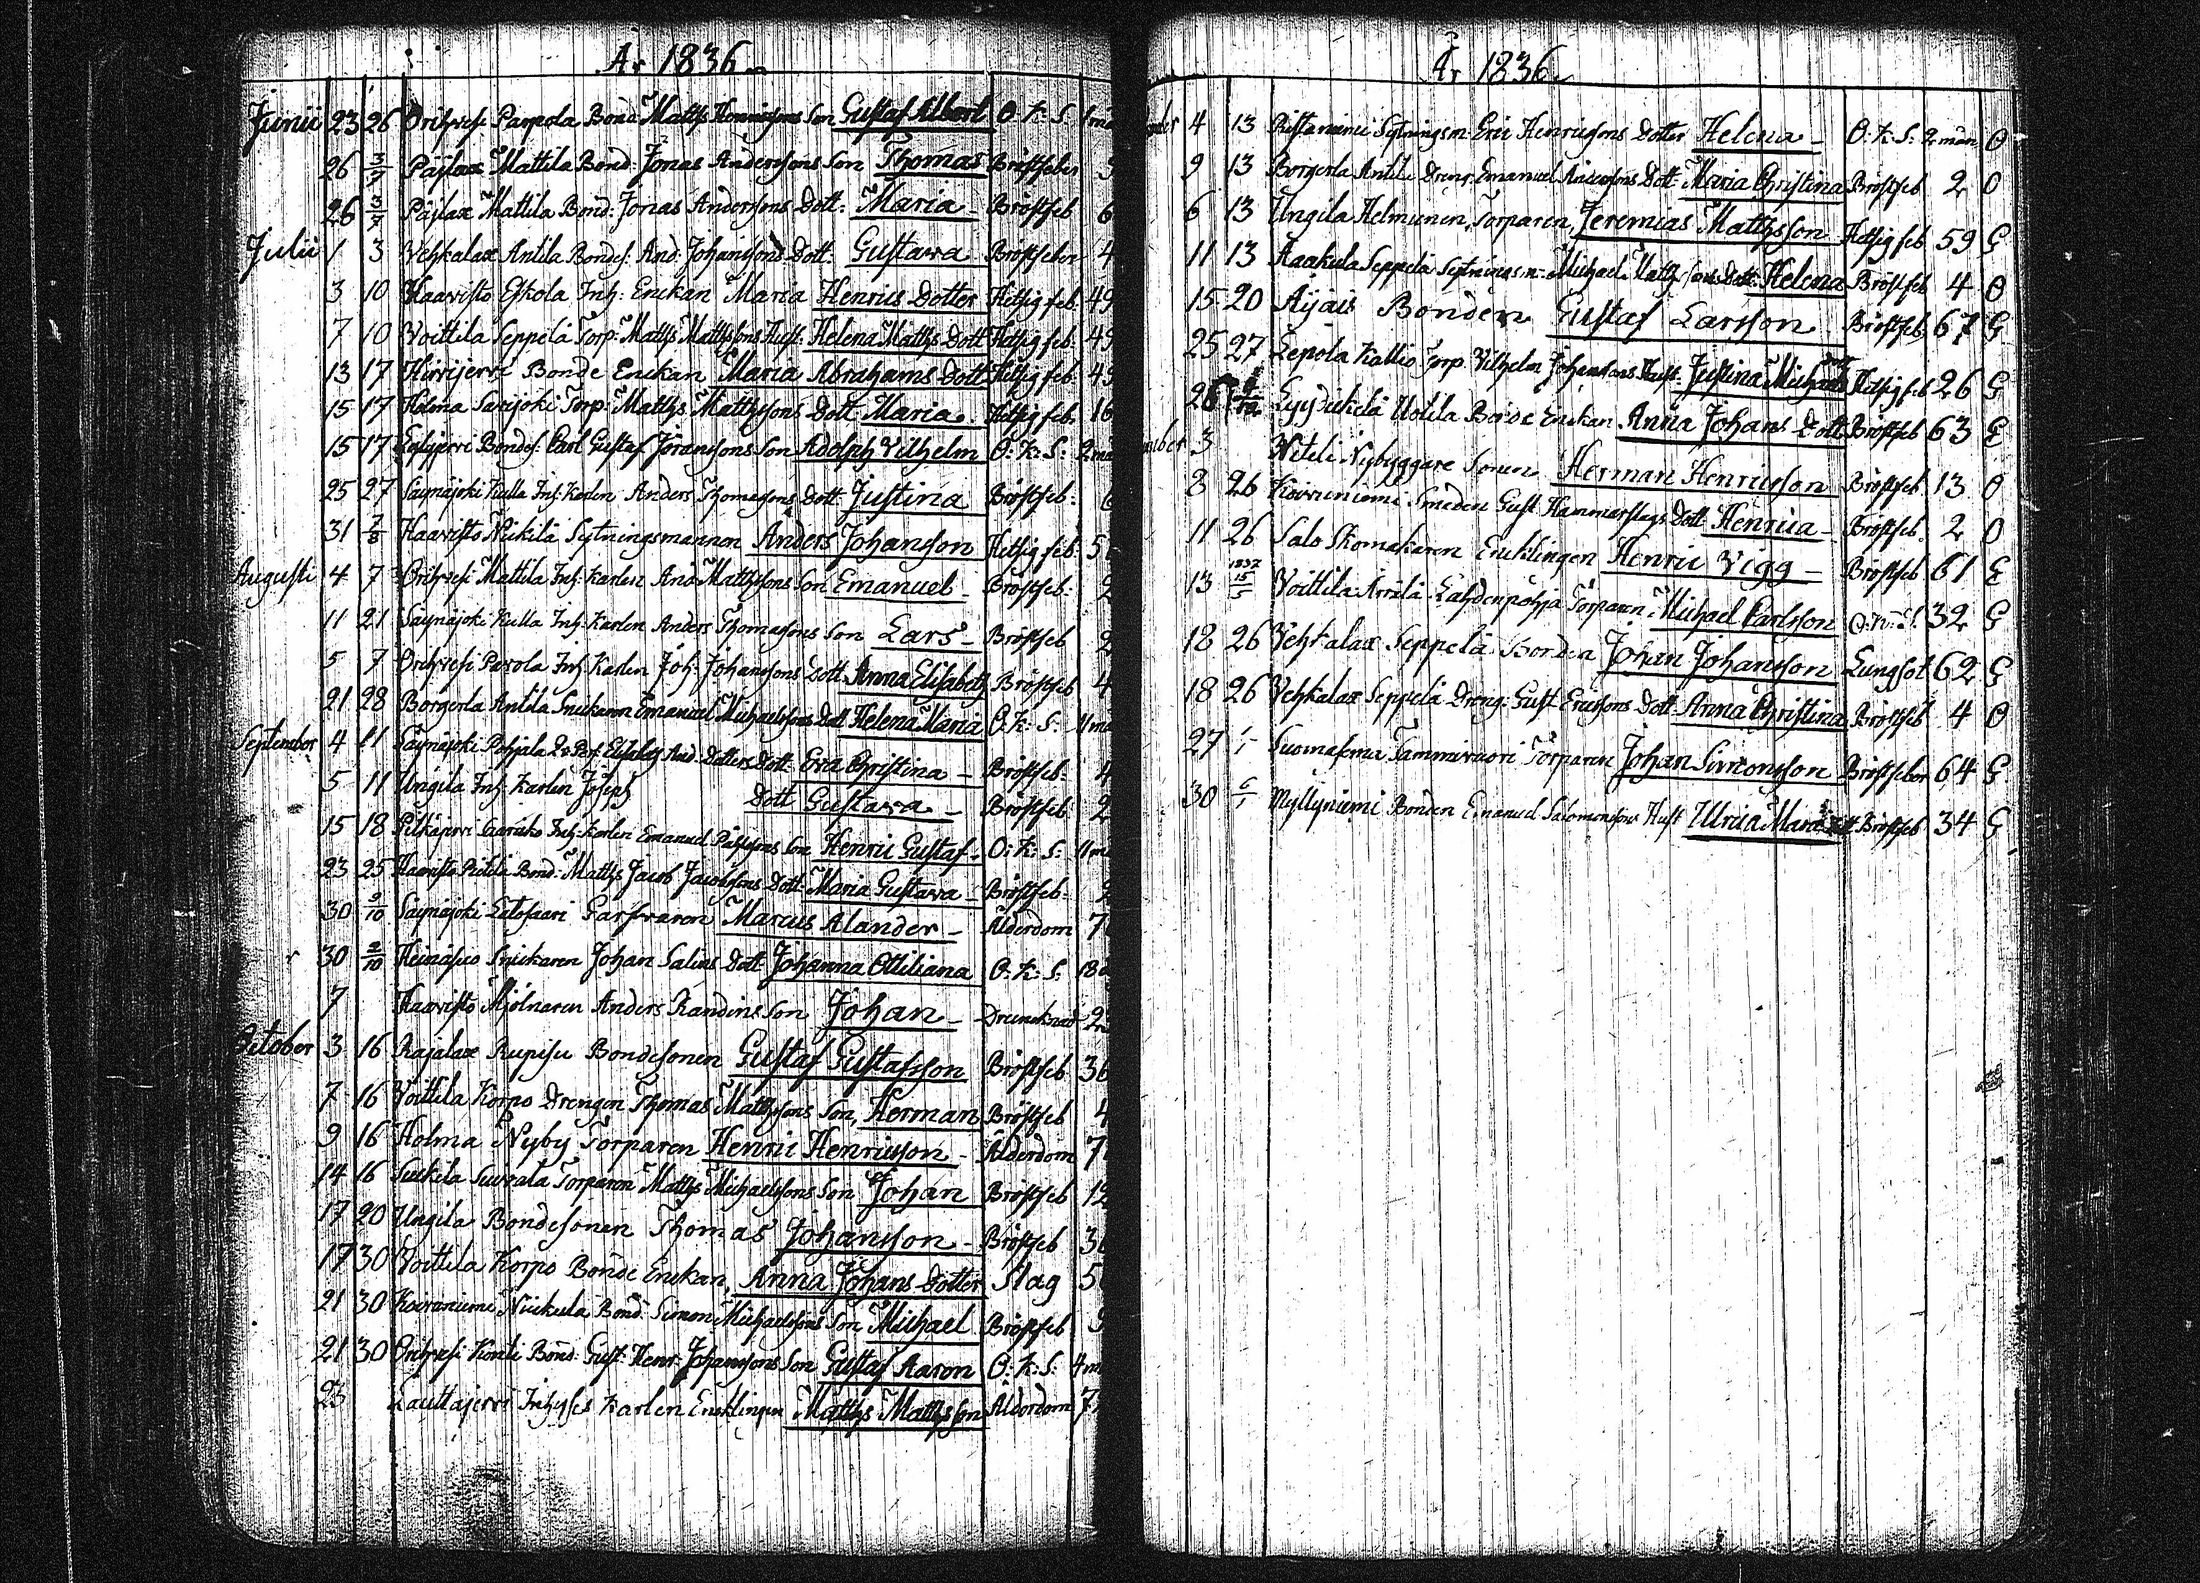 År 1836
Junii 23 26 Orihvesi Parpola Bond Matths Henricssons Son Gustaf Albert O. K. S. 1 mån
26 3/7 Päjlax Mattila Bond: Jonas Anderssons Son Thomas Bröstfeber 3
26 3/7 Päjlax Mattila Bond: Jonas Anderssons Dott: Maria Bröstfeb 6
Julii 1 3 Vehkalax Antila Bondes: And: Johanssons Dott: Gustava Bröstfeber 4
3 10 Haavisto Eskola Inh: Enckan Maria Henrics Dotter Hetsig feb. 49
7 10 Voittila Seppelä Torp: Matths Matthssons Hust: Helena Matths Dott Hetsig feb. 49
13 17 Hirvijervi Bonde Enckan Maria Abrahams Dott Hetsig feb 45
15 17 Holma Sarijoki Torp: Matths Matthssons Dott Maria Hetsig feb. 16
15 17 Bondes: Carl Gustaf Joranssons Son Adolph Vilhelm O. K. S: 2 må
25 27 Säynäjoki Kulla Inh: Karlen Anders Thomassons Dott Justina Bröstfeb: 6
31 7/8 Haavisto Nickilä Sytningsmannen Anders Johansson Hetsig feb. 5
Augusti 4 7 Orihvesi Mattila Inh: karlen And Matthssons Son Emanuel Bröstfeb: 2
11 21 Säynäjoki Kulla Inh: Karlen Anders Thomassons Son Lars Bröstfeb 2
5 7 Orihvesi Parola Inh: Karlen Joh: Johanssons Dott: Anna Elisabeth Bröstfeb 4
21 28 Borgerla Antila Snickaren Emanuel Michaelssons Dott Helena Maria O. K. S: 11 må
September 4 11 Säynäjoki Pohjala Qv: Pers: Elisabeth And: Dotters Dott: Eva Christina Bröstfeb: 4
5 11 Ungila Inh: Karlen Joseph Dott Gustava Bröstfeb 2
15 18 Pitkäjervi Inh: Karlen Emanuel Son Henric Gustaf. O. K. S: 11 må
23 25 Haavisto Bond: Matths Jacob Jacobssons Dott: Maria Gustava Bröstfeb: 2
30 9/10 Säynäjoki Latosaari Garfvaren Marcus Alander Ålderdom 7
30 2/10 Heinäsuo Snickaren Johan Salins Dott Johanna Ottiliana O. K. S: 18 d
7 Haavisto Mjölnaren Anders Randins Son Johan Drunknad 2
October 3 16 Rajalax Rupisu Bondesonen Gustaf Gustafsson Bröstfeb 36
7 16 Voittila Korpo Drengen Thomas Matthssons Son, Herman Bröstfeb 4
9 16 Holma Nyby Torparen Henric Henricsson Ålderdom 7
14 16 Suckila Suveala Torparen Matths Michaelssons Son Johan Bröstfeb 12
17 20 Ungila Bondesonen Thomas Johansson Bröstfeb 3
17 30 Voittila Korpo Bonde Enckan, Anna Johans Dotter Slag 5
21 30 Koivuniemi Nickula Bond: Simon Michaelssons Son Michael Bröstfeb 9
21 30 Orihvesi Bond: Gust: Henr: Johanssons Son Gustaf Aaron O. K. S: 4 m
23 Lauttajervi Inhyses Karlen Encklingen Matths Mattsson Ålderdom 7
År 1836
4 13 Ristaniemi Sytningsm: Eric Henricssons Dotter Helena O. K. S. 2 mån O
9 13 Borgerla Antila Dreng: Emanuel Anderssons Dott Maria Christina Bröstfeb 2 O
6 13 Ungila Helmunen, Torparen, Jeremias Matthsson Hetsig feb 59 G
11 13 Haakula Seppelä Sytnings m: Michael Matthssons Dott: Helena Bröstfeb 4 O
15 20 Äijäis Bonden Gustaf Larsson Bröstfeb. 67 G
25 27 Lepola Kallio Torp. Vilhelm Johanssons Hust: Justina Michaels Dott Hetsig feb 26 G
26 Uotila Bonde Enckan Anna Johans Dott Bröstfeb 63 E
mber 3 Nybyggare Sonen Herman Henricsson Bröstfeb. 13 O
8 26 Koivuniemi Smeden Gust Hammarslags Dott Henrica Bröstfeb. 2 O
11 26 Salo Skomakaren Encklingen Henric Vigg Bröstfeb 61 E
13 1837 15/5 Voittila Arrilä Lahdenpohja Torparen Michael Carlsson 32 G
18 26 Vehkalax Seppelä Bonden Johan Johansson Lungsot 62 G
18 26 Vehkalax Seppelä Dreng: Gust Ericssons Dott Anna Christina Bröstfeb 4 O
27 1/1 Suomasema Tammivuori Torparen Johan Simonsson Bröstfeber 64 G
30 6/1 Myllyniemi Bonden Emanuel Salomonssons Hust Ulrica Maria Dott Bröstfeb 34 G